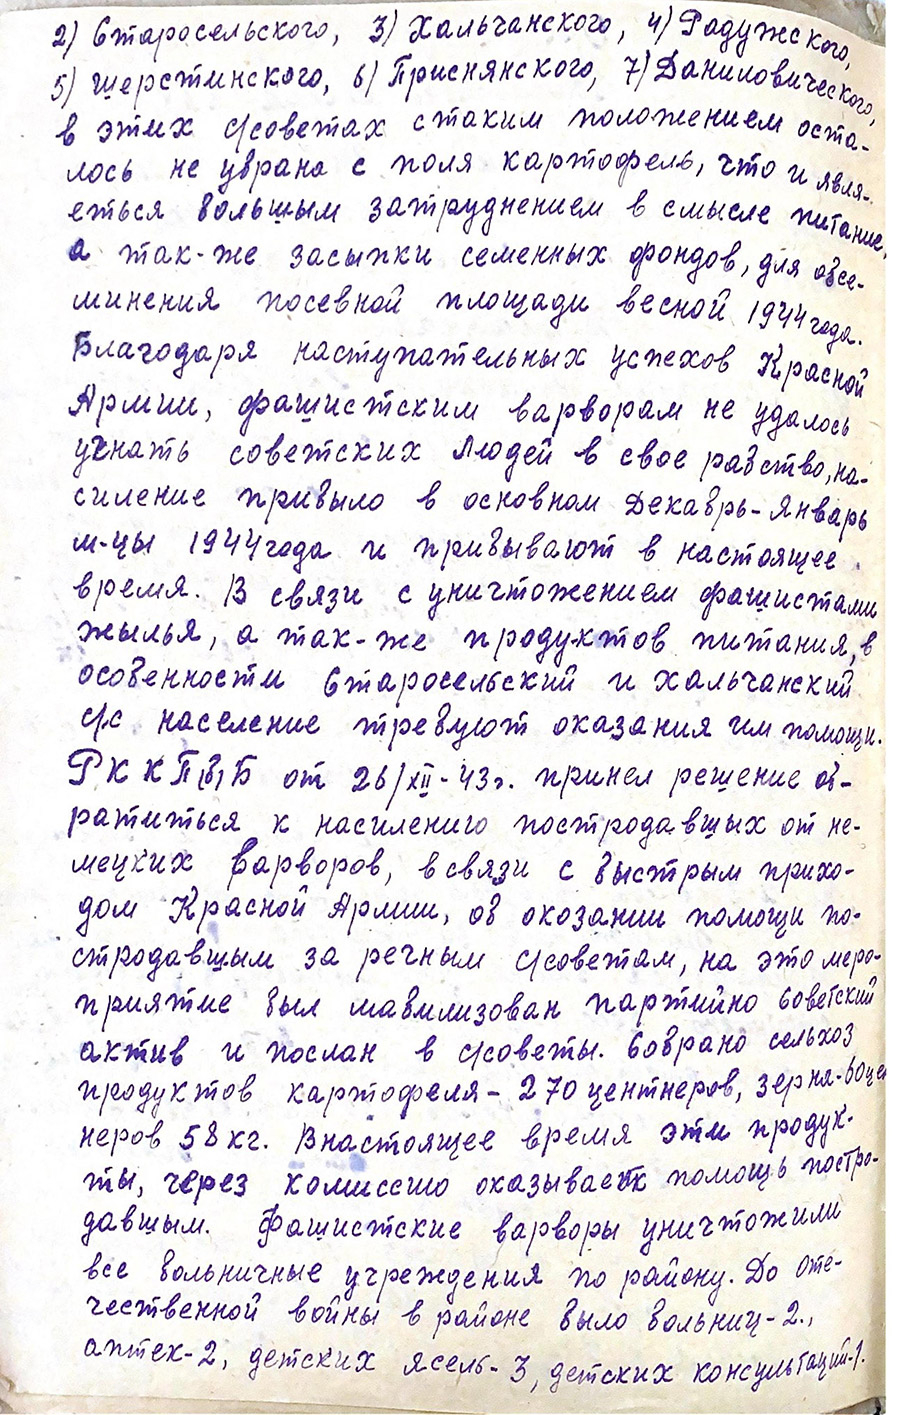 2) Старосельского, 3) Хальчанского, 4) Радужского,
5) Шерстинского, 6) Приснянского, 7) Даниловического,
в этих с/советах с таким положением оста-
лось не убрана с поля картофель, что и явля-
еться большым затруднением в смысле питание,
а так-же засыпки семенных фондов, для обсе-
минения посевной площади весной 1944 года.
Благодаря наступательных успехов Красной
Армии, фашистским варворам не удалось
угнать советских людей в свое рабство, на-
силение прибыло в основном Декабрь-Январь
м-цы 1944 года и прибывают в настоящее
время. В связи с уничтожением фашистами
жылья, а так-же продуктов питания, в
особенности Старосельский и Хальчанский
с/с население требуют оказания им помощи.
РККП(б)Б от 26/XII-43г. принел решение об-
ратиться к насилению постродавшых от не-
мецких варворов, в связи с быстрым прихо-
дом Красной Армии, об окозании помощи по-
стродавшым за речным с/советам, на это меро-
приятие был мабилизован партийно советский
актив и послан в с/советы. Собрано сельхоз
продуктов картофеля - 270 центнеров, зерна-60 цен
неров 58 кг. В настоящее время эти продук-
ты, через комиссию оказывает помощь постро-
давшым. Фашистские варворы уничтожили
все больничные учреждения по району. До оте-
чественной войны в районе было больниц-2.,
аптек-2, детских ясель-3, детских консультаций-1.